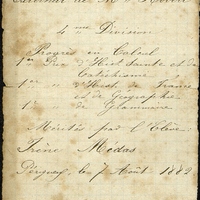 4me Division
Progrès en Calcul
1er Prix d'Hist. Sainte et de
Catéchisme
1er " d'Hist. de France
et de Géographie
1er " de Grammaire
Mérités par l'Elève
Irène Médas
le 7 Août 1882